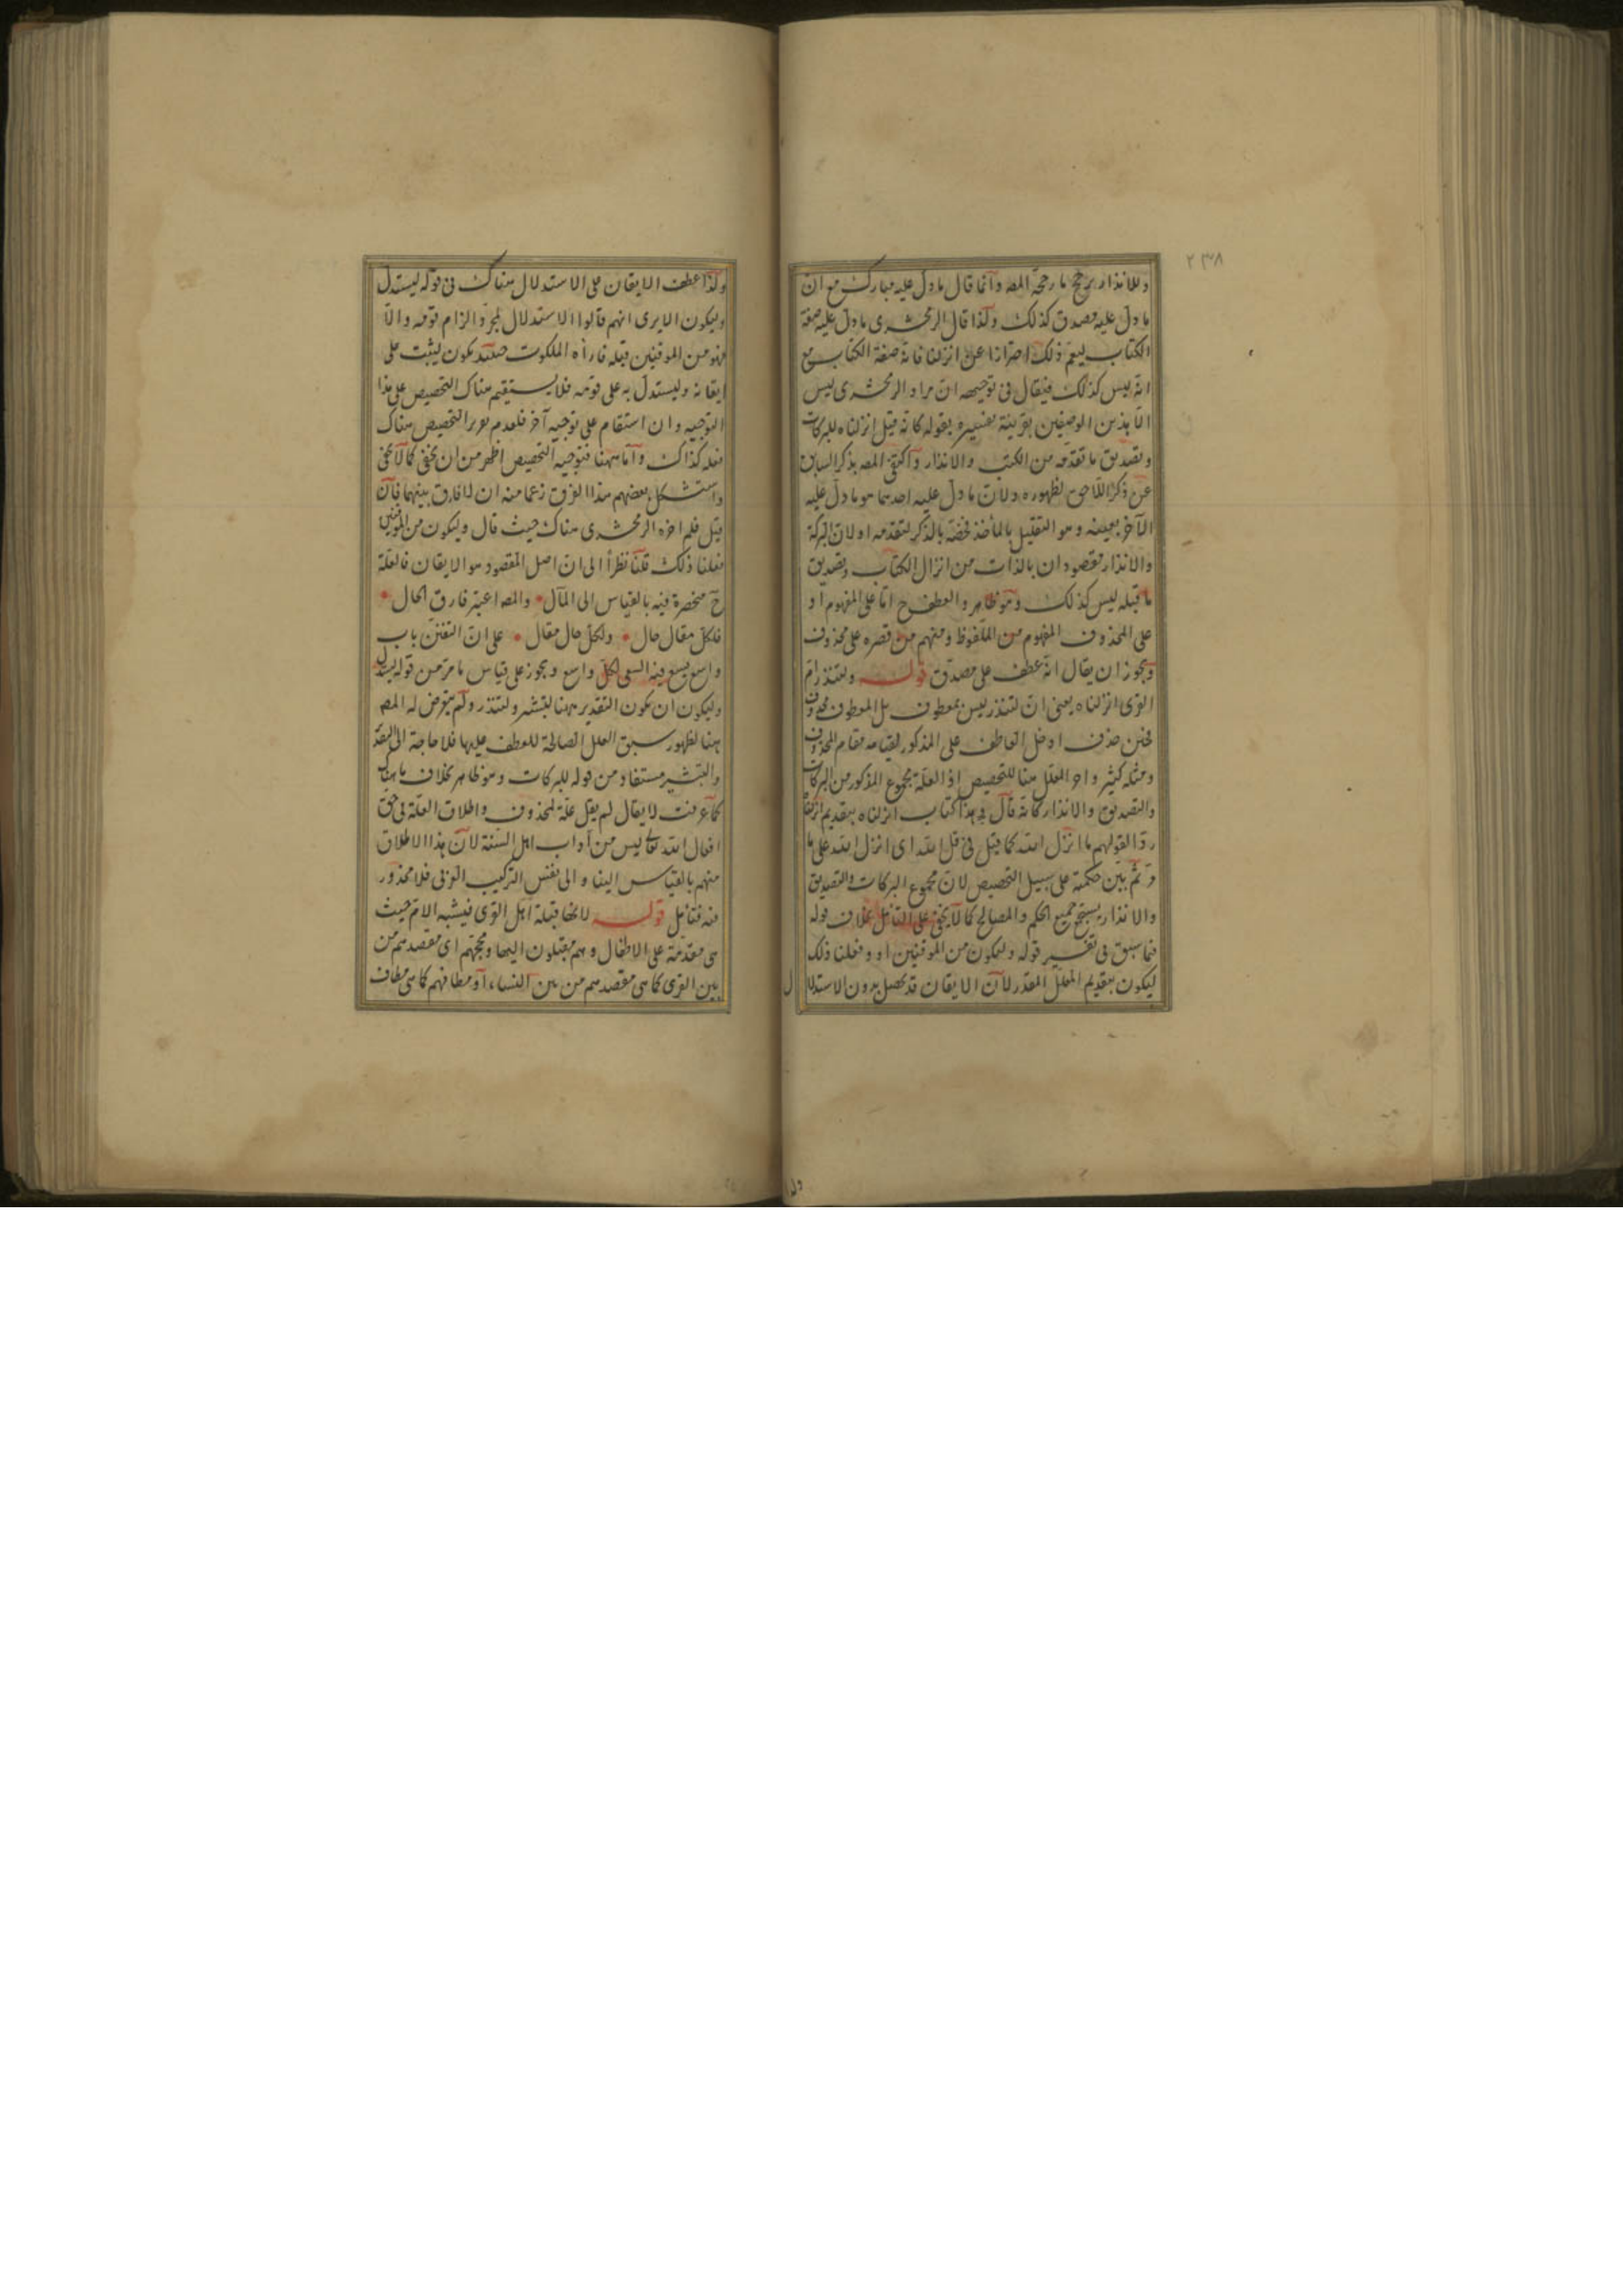 ٢٣٨
وللانذار يرجح ما رجحه المصه وانما قال ما دل عليه مبارك مع ان
ما دل عليه مصدق كذلك ولذا قال الزمخشرى ما دل عليه صفة
الكتاب ليعم ذلك احترازا عن انزلنا فانه صفة الكتاب مع
انه ليس كذلك فيقال فى توجيهه ان مراد الزمخشرى ليس
الا بذين الوصفين بقرينة تفسيره بقوله كانه قيل انزلناه للبركات
وتصديق ما تقدمه من الكتب والانذار واكتفى المصه بذكر السابق
عن ذكر اللاحق لظهوره ولان ما دل عليه احدهما هو ما دل عليه
الآخر بعينه وهو التعليل بالمأخذ فخصه بالذكر لتقدمه او لان البركة
والانذار مقصودان بالذات من انزال الكتاب وتصديق
ما قبله ليس كذلك وهو ظاهر والعطف ح اما على المفهوم او
على المحذوف المفهوم من الملفوظ ومنهم من قصره على محذوف
ويجوز ان يقال انه عطف على مصدق قوله ولتنذر ام
القرى انزلناه يعنى ان لتنذر ليس بمعطوف بل المعطوف محذوف
فحين حذف ادخل العاطف على المذكور لقيامه مقام المحذوف
ومثله كثير واخر المعلل هنا للتخصيص اذ العلة مجموع المذكور من البركات
والتصديق والانذار كانه قال فى هذا كتاب انزلناه بتقديم انزلنا
ردا لقولهم ما انزل الله كما قيل فى قل الله اى انزل الله على ما
مر ثم بين حكمته على سبيل التخصيص لان مجموع البركات والتصديق
والانذار يستجمع جميع الحكم والمصالح كما لا يخفى على المتأمل بخلاف قوله
فيما سبق فى تفسير قوله وليكون من الموقنين او وفعلنا ذلك
ليكون بتقديم المعلل المقدر لان الايقان قد يحصل بدون الاستدلال
ولذا
ولذا عطف الايقان على الاستدلال هناك فى قوله ليستدل
وليكون الا يرى انهم قالوا الاستدلال لمجرد الزام قومه والا
فهو من الموقنين قبله فاراه الملكوت حينئذ يكون ليثبت على
ايقانه وليستدل به على قومه فلا يستقيم هناك التخصيص على هذا
التوجيه وان استقام على توجيه آخر فلعدم تعرير التخصيص هناك
فعله كذاك واما ههنا فتوجيه التخصيص اظهر من ان يخفى كما لا يخفى
واستشكل بعضهم هذا الفرق زعما منه ان لا فارق بينهما فان
قيل فلم اخره الزمخشرى هناك حيث قال وليكون من الموقنين
فعلنا ذلك قلنا نظرا الى ان اصل المقصود هو الايقان فالعلة
ح منحصرة فيه بالقياس الى المآل والمصه اعتبر فارق الحال
فلكل مقال حال ولكل حال مقال على ان التفنن باب
واسع يسع فيه السعى لكل واسع ويجوز على قياس ما مر من قوله ليستدل
وليكون ان يكون التقدير ههنا لتبشر ولتنذر ولم يتعرض له المصه
هنا لظهور سبق العلل الصالحة للعطف عليها فلا حاجة الى التقدير
والتبشير مستفاد من قوله للبركات وهو ظاهر بخلاف ما هناك
كما عرفت لا يقال لم يقل علة لمحذوف واطلاق العلة فى حق
افعال الله تعالى ليس من آداب اهل السنة لان هذا الاطلاق
منهم بالقياس الينا والى نفس التركيب العرفى فلا محذور
فيه فتأمل قوله لانها قبلة اهل القرى فيشبه الام حيث
هى مقدمة على الاطفال وهم مقبلون اليها ومحجهم اى مقصدهم من
بين القرى كما هى مقصدهم من بين النساء او مطافهم كما هى مطاف